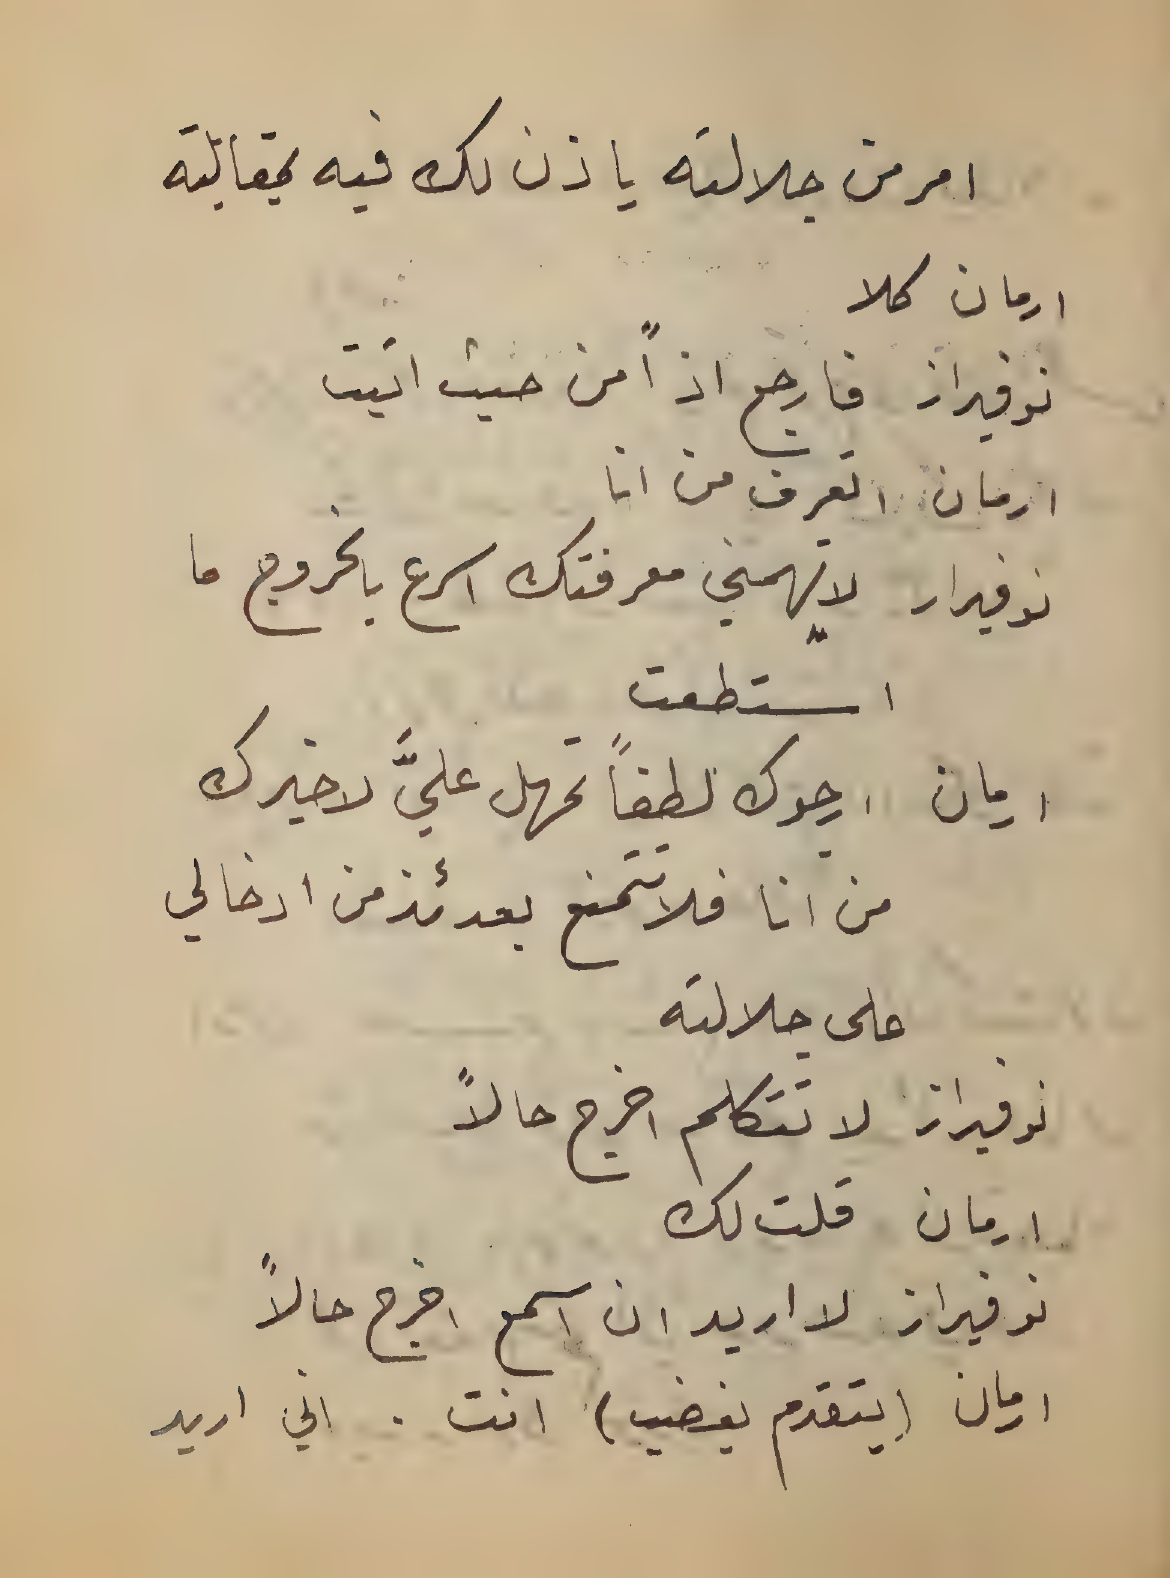 امر من جلالته ياذن لك فيه بمقابلته
ارمان كلا
نوفيراز فارجع اذاً من حيث اتيت
ارمان اتعرف من انا
نوفيرار لا تهمّني معرفتك اسرع بالخروج ما
استطعت
ارمان ارجوك لطفاً تمهل عليَّ لاخبرك
من انا فلا تتمنع بعدئذ من ادخالي
على جلالته
نوفيراز لا تتكلم اخرج حالاً
ارمان قلت لك
نوفيراز لا اريد ان اسمع اخرج حالاً
ارمان (يتقدم بغضب) انت . اني اريد